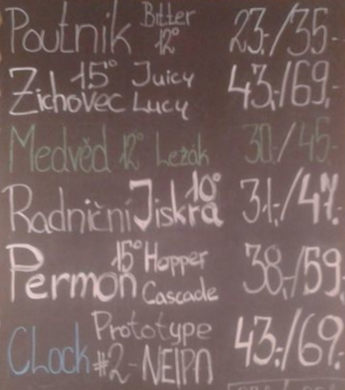 Poutník Bitter 12° 23,-/35,-
Zichovec 15° Juicy Lucy 43,-/69,-
Medvěd 12° Ležák 30,-/45,-
Radniční Jiskra 10° 31,-/47,-
Permon 15° Hopper Cascade 38,-/59,-
Clock Prototype #2 - NEIPA 43,-/69,-